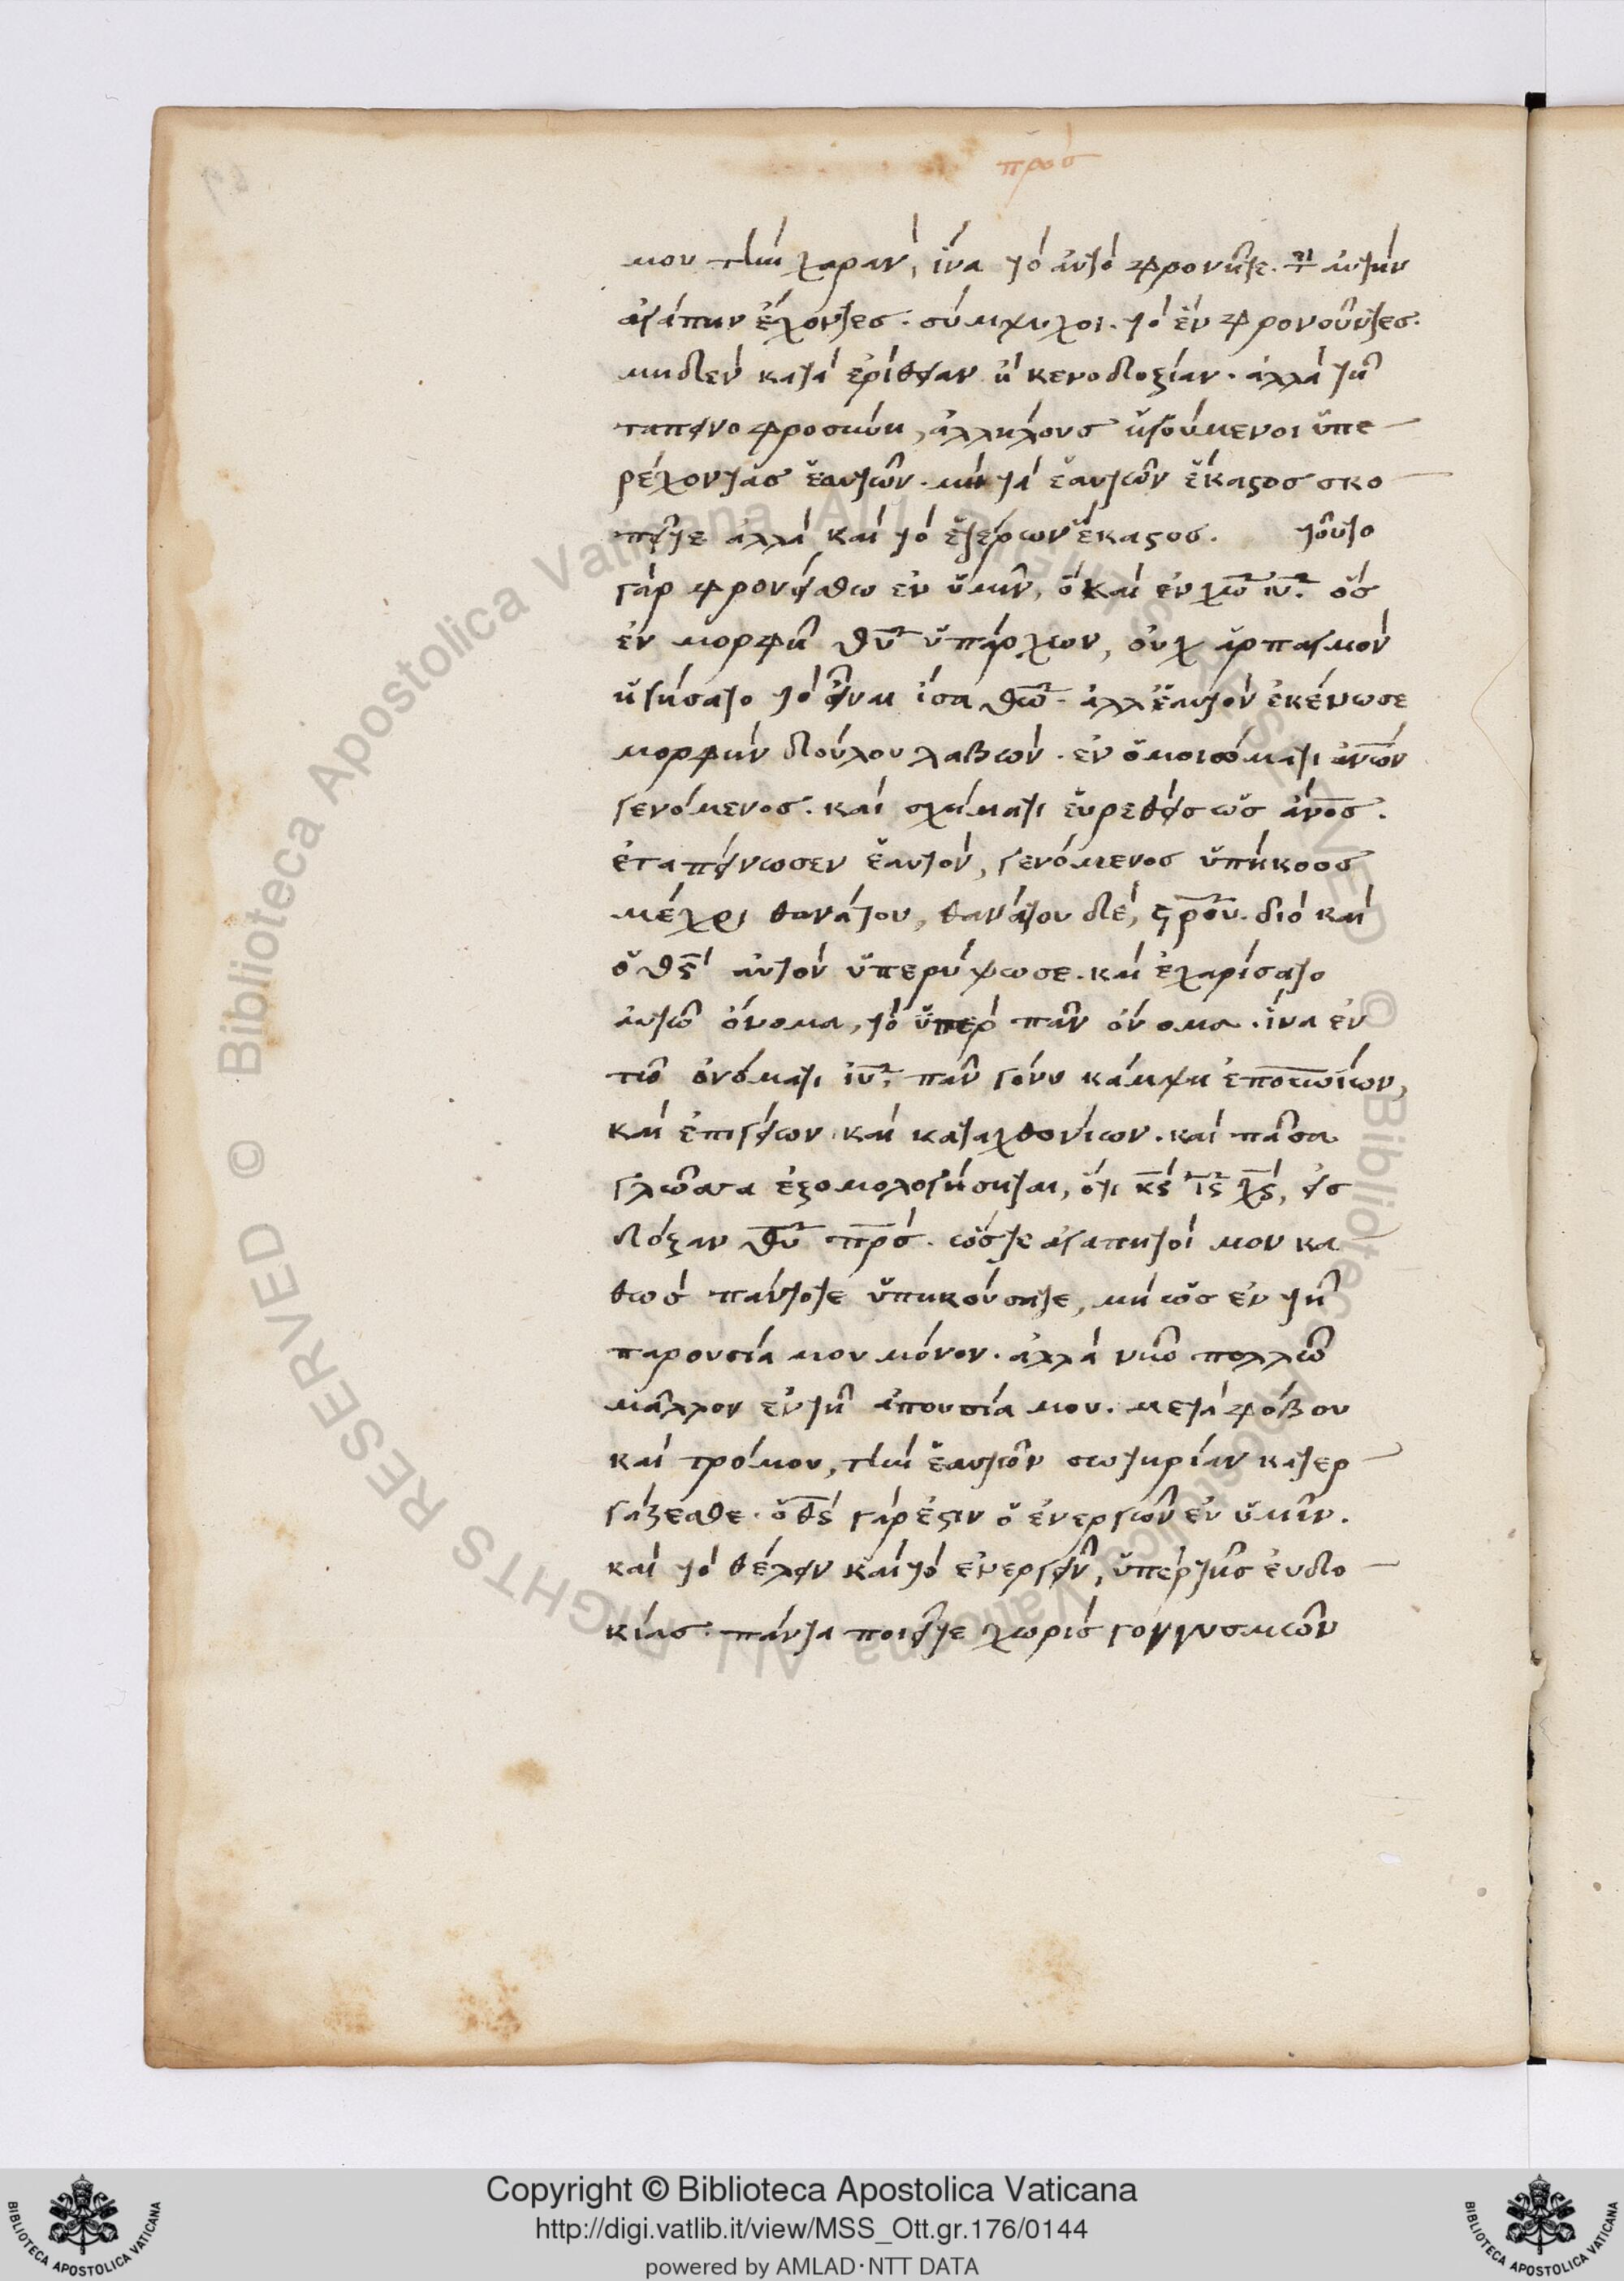 πρὸσ
μου τὴν χαραν, ἵνα τὸ ἀυτὸ φρονῆτε. τὴν ἀυτὴν
ἀγάπην ἔχοντες. σύμψυχοι. τὸ ἓν φρονοῦντες.
μηδὲν κατὰ ἐρίθειαν ἢ κενοδοξίαν. ἀλλὰ τῆ
ταπεινοφροσύνη, ἀλλήλουσ ἡγούμενοι ὑπε
ρέχοντασ ἑαυτῶν. μὴ τὰ ἑαυτῶν ἕκαστοσ σκο
πεῖτε ἀλλὰ καὶ τὸ ἑτέρων ἕκαστοσ. τοῦτο
γὰρ φρονείσθω ἐν ὑμῖν, ὃ καὶ ἐν χῶ ιῦ. ὃσ
ἐν μορφῆ θῦ ὑπάρχων, οὐχ ἁρπαγμὸν
ἡγήσατο τὸ εἶναι ἴσα θῶ. ἀλλ ἑαυτὸν ἐκένωσε
μορφὴν δούλου λαβών. ἐν ὁμοιώματι ἀνῶν
γενόμενοσ. καὶ σχήματι εὑρεθεὶσ ὡσ ἄνοσ.
ἐταπείνωσεν ἑαυτὸν, γενόμενοσ ὑπήκοοσ
μέχρι θανάτου, θανάτου δὲ, στροῦ. διὸ καὶ
ὁ θσ αὐτὸν ὑπερύψωσε. καὶ ἐχαρίσατο
ἀυτῶ ὄνομα, τὸ ὑπὲρ πᾶν ὄνομα. ἵνα ἐν
τῶ ὀνόματι ιῦ, πᾶν γόνυ κάμψη ἐπουνίων,
καὶ ἐπιγείων καὶ καταχθονίων. καὶ πᾶσα
γλῶσσα ἐξομολογήσηται, ὅτι κσ ισ χσ, εἰσ
δόξαν θῦ πρσ. ὥστε ἀγαπητοί μου κα
θὼσ πάντοτε ὑπηκούσατε, μὴ ὡσ ἐν τῆ
παρουσία μου μόνον. ἀλλὰ νῦν πολλῶ
μᾶλλον ἐν τῆ ἀπουσία μου. μετὰ φόβου
καὶ τρόμου, τὴν ἑαυτῶν σωτηρίαν κατερ
γάζεσθε. ὁ θσ γάρ ἐστιν ὁ ἐνεργῶν ἐν ὑμῖν.
καὶ τὸ θέλειν καὶ τὸ ἐνεργεῖν, ὑπὲρ τῆσ ἐυδο
κίασ. πάντα ποιεῖτε χωρὶσ γογγυσμῶν
Copyright © Biblioteca Apostolica Vaticana
http://digi.vatlib.it/view/MSS_Ott.gr.176/0144
powered by AMLAD·NTT DATA